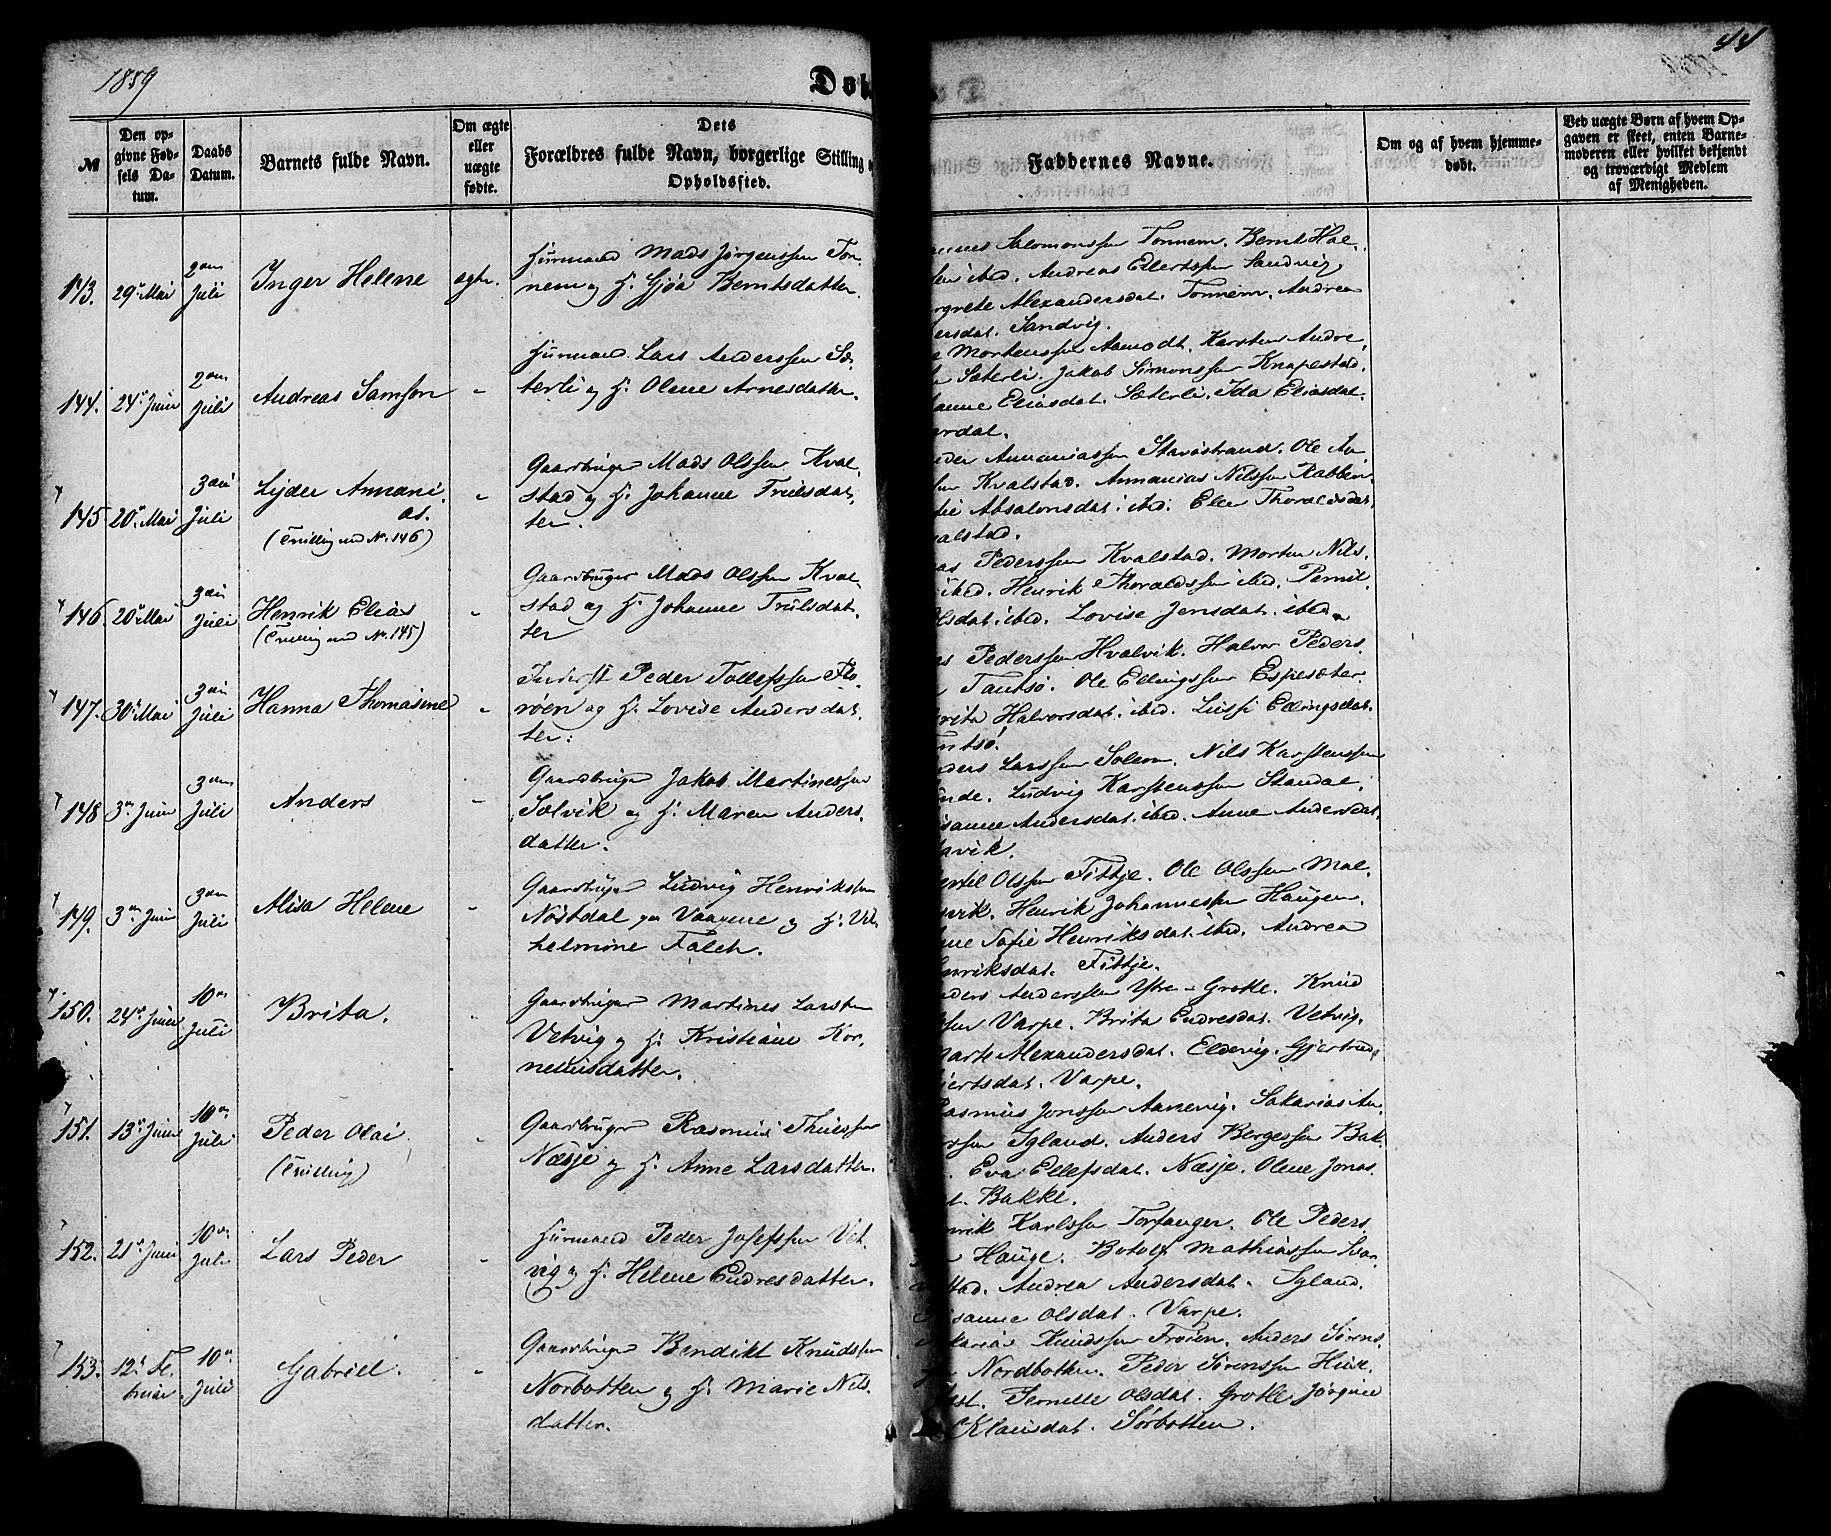 1859
44
Døb
№
Den op-
givne Fød-
sels Da-
tum.
Daabs
Datum.
Barnets fulde Navn.
Om ægte
eller
uægte
fødte.
Dets
Forældres fulde Navn, borgerlige Stilling o
Opholdssted.
Faddernes Navne.
Om og af hvem hjemme-
døbt.
Ved uægte Børn af hvem Op-
gaven er skeet, enten Barne-
moderen eller hvilket bekjendt
og troværdigt Medlem
af Menigheden.
143.
29de Mai
2den
Juli
Inger Helene
ægte.
Huusmand Mads Jørgenssen Ton-
nem og H. Gjøa Berntsdatter
annes Salomonssen Tonnem. Bernt Hal-
ssen ibid. Andreas Ellertssen Sandvig
rgrete Alexandersdat. Tonnem. Andrea
ersdat. Sandvig.
144.
24de Juni
2den
Juli
Andreas Samson
-
Huusmand Lars Anderssen Sæ-
terli og H. Olene Arnesdatter
Mortenssen Aamodt. Karsten Andre-
Sæterli. Jakob Simonssen Knapestad.
anne Eliasdat. Sæterli. Ida Eliasdat.
erdal.
145
20de Mai
3die
Juli
Lyder Annani-
as.
(Tvilling med No. 146)
-
Gaardbruger Mads Olssen Kval-
stad og H. Johanne Trulsdat-
ter.
eder Annaniassen Stavøstrand. Ole An-
ssen Kvalstad. Annanias Nilssen Rabben
fie Absalonsdat. ibid. Elle Thoraldsdat.
valstad.
146.
20de Mai
3die
Juli
Henrik Elias
(Tvilling med No. 145)
-
Gaardbruger Mads Olssen Kval-
stad og H. Johanne Trulsdat-
ter
as Pederssen Kvalstad. Morten Nils-
ibid. Henrik Thoraldssen ibid. Pernil-
lsdat. ibid. Lovise Jensdat. ibid.
147.
30te Mai
3die
Juli
Hanna Thomasine
-
Inderst Peder Tollefssen Flo-
røen og H. Lovise Andersdat-
ter.
Pederssen Hvalvik. Halvor Peders-
Tautsø. Ole Ellingssen Espesæter
rita Halvorsdat. ibid. Lussi Ellingsdat.
utsø.
148
3die Juni
3die
Juli
Anders
-
Gaardbruger Jakob Martinessen
Solvik og H. Maren Anders-
datter.
nders Larssen Solem. Nils Karstenssen
nde. Ludvig Karstenssen Standal.
sanne Andersdat. ibid. Anne Andersdat.
avik.
149.
3die Juni
3die
Juli
Alisa Helene
-
Gaardbruger Ludvig Henrikssen
Nøstdal paa Vaagene og H. Vil-
helmine Falch.
ertil Olssen Fittje. Ole Olssen Mal-
vik. Henrik Johannessen Haugen.
ne Sofie Henriksdat. ibid. Andrea
nriksdat. Fittje.
150.
24de Juni
10de
Juli
Brita.
Gaardbruger Martines Larssen
Vetvig og H. Kristiane Kor-
neliusdatter.
nders Anderssen Ytre-Grotle. Knud
ssen Varpe. Brita Endresdat. Vetvig.
Marte Alexandersdat. Eldevig. Gjertrud
jertsdat. Varpe.
151.
13de Juni
10de
Juli
Peder Olai
(Tvilling)
-
Gaardbruger Rasmus Thuessen
Næsje og H. Anne Larsdatter.
Rasmus Jonssen Aanevig. Sakarias An-
erssen Igland. Anders Børgessen Bak-
Eva Ellefsdat. Næsje. Olene Jonas-
t. Bakke.
152.
21de Juni
10de
Juli
Lars Peder
-
Huusmand Peder Josefssen Vet-
vig og H. Helene Endresdatter.
nrik Karlssen Torfanger. Ole Peders-
Hauge. Botolf Mathiassen Svar-
stad. Andrea Andersdat. Igland.
sanne Olsdat. Varpe.
153.
12te Fe-
bruar
10de
Juli
Gabriel.
-
Gaardbruger Bendikt Knudssen
Norbotten og H. Marie Nils-
datter.
akarias Knudssen Frøien. Anders Sørens-
Nordbotten. Peder Sørenssen Huse-
st. Pernelle Olsdat. Grotle. Jørgine
Klausdat. Sørbotten.